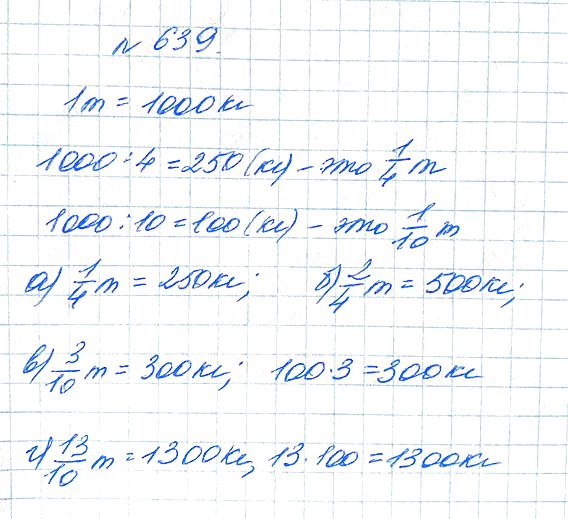 № 639.
1т = 1000кг
1000 : 4 = 250 (кг) – это 1/4 т
1000 : 10 = 100 (кг) – это 1/10 т
а) 1/4 т = 250кг; б) 2/4 т = 500кг;
в) 3/10 т = 300кг; 100·3 = 300кг
г) 13/10 т = 1300кг, 13·100 = 1300кг